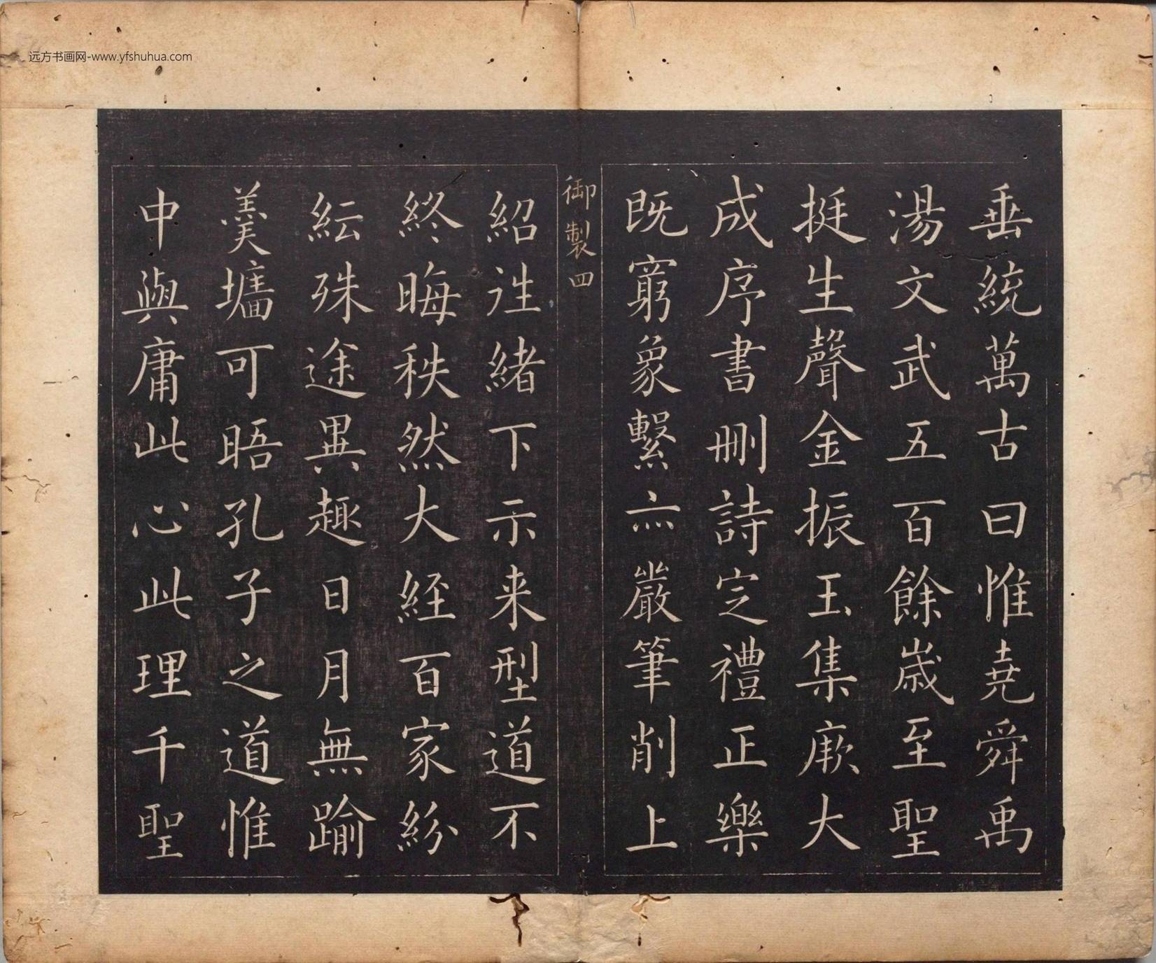 远方书画网-www.yfshuhua.com
垂統萬古曰惟堯舜禹
湯文武五百餘歲至聖
挺生聲金振玉集厥大
成序書刪詩定禮正樂
既窮象繫亦嚴筆削上
御製四
紹往緒下示来型道不
終晦秩然大経百家紛
紜殊途異趣日月無踰
羹墻可晤孔子之道惟
中與庸此心此理千聖